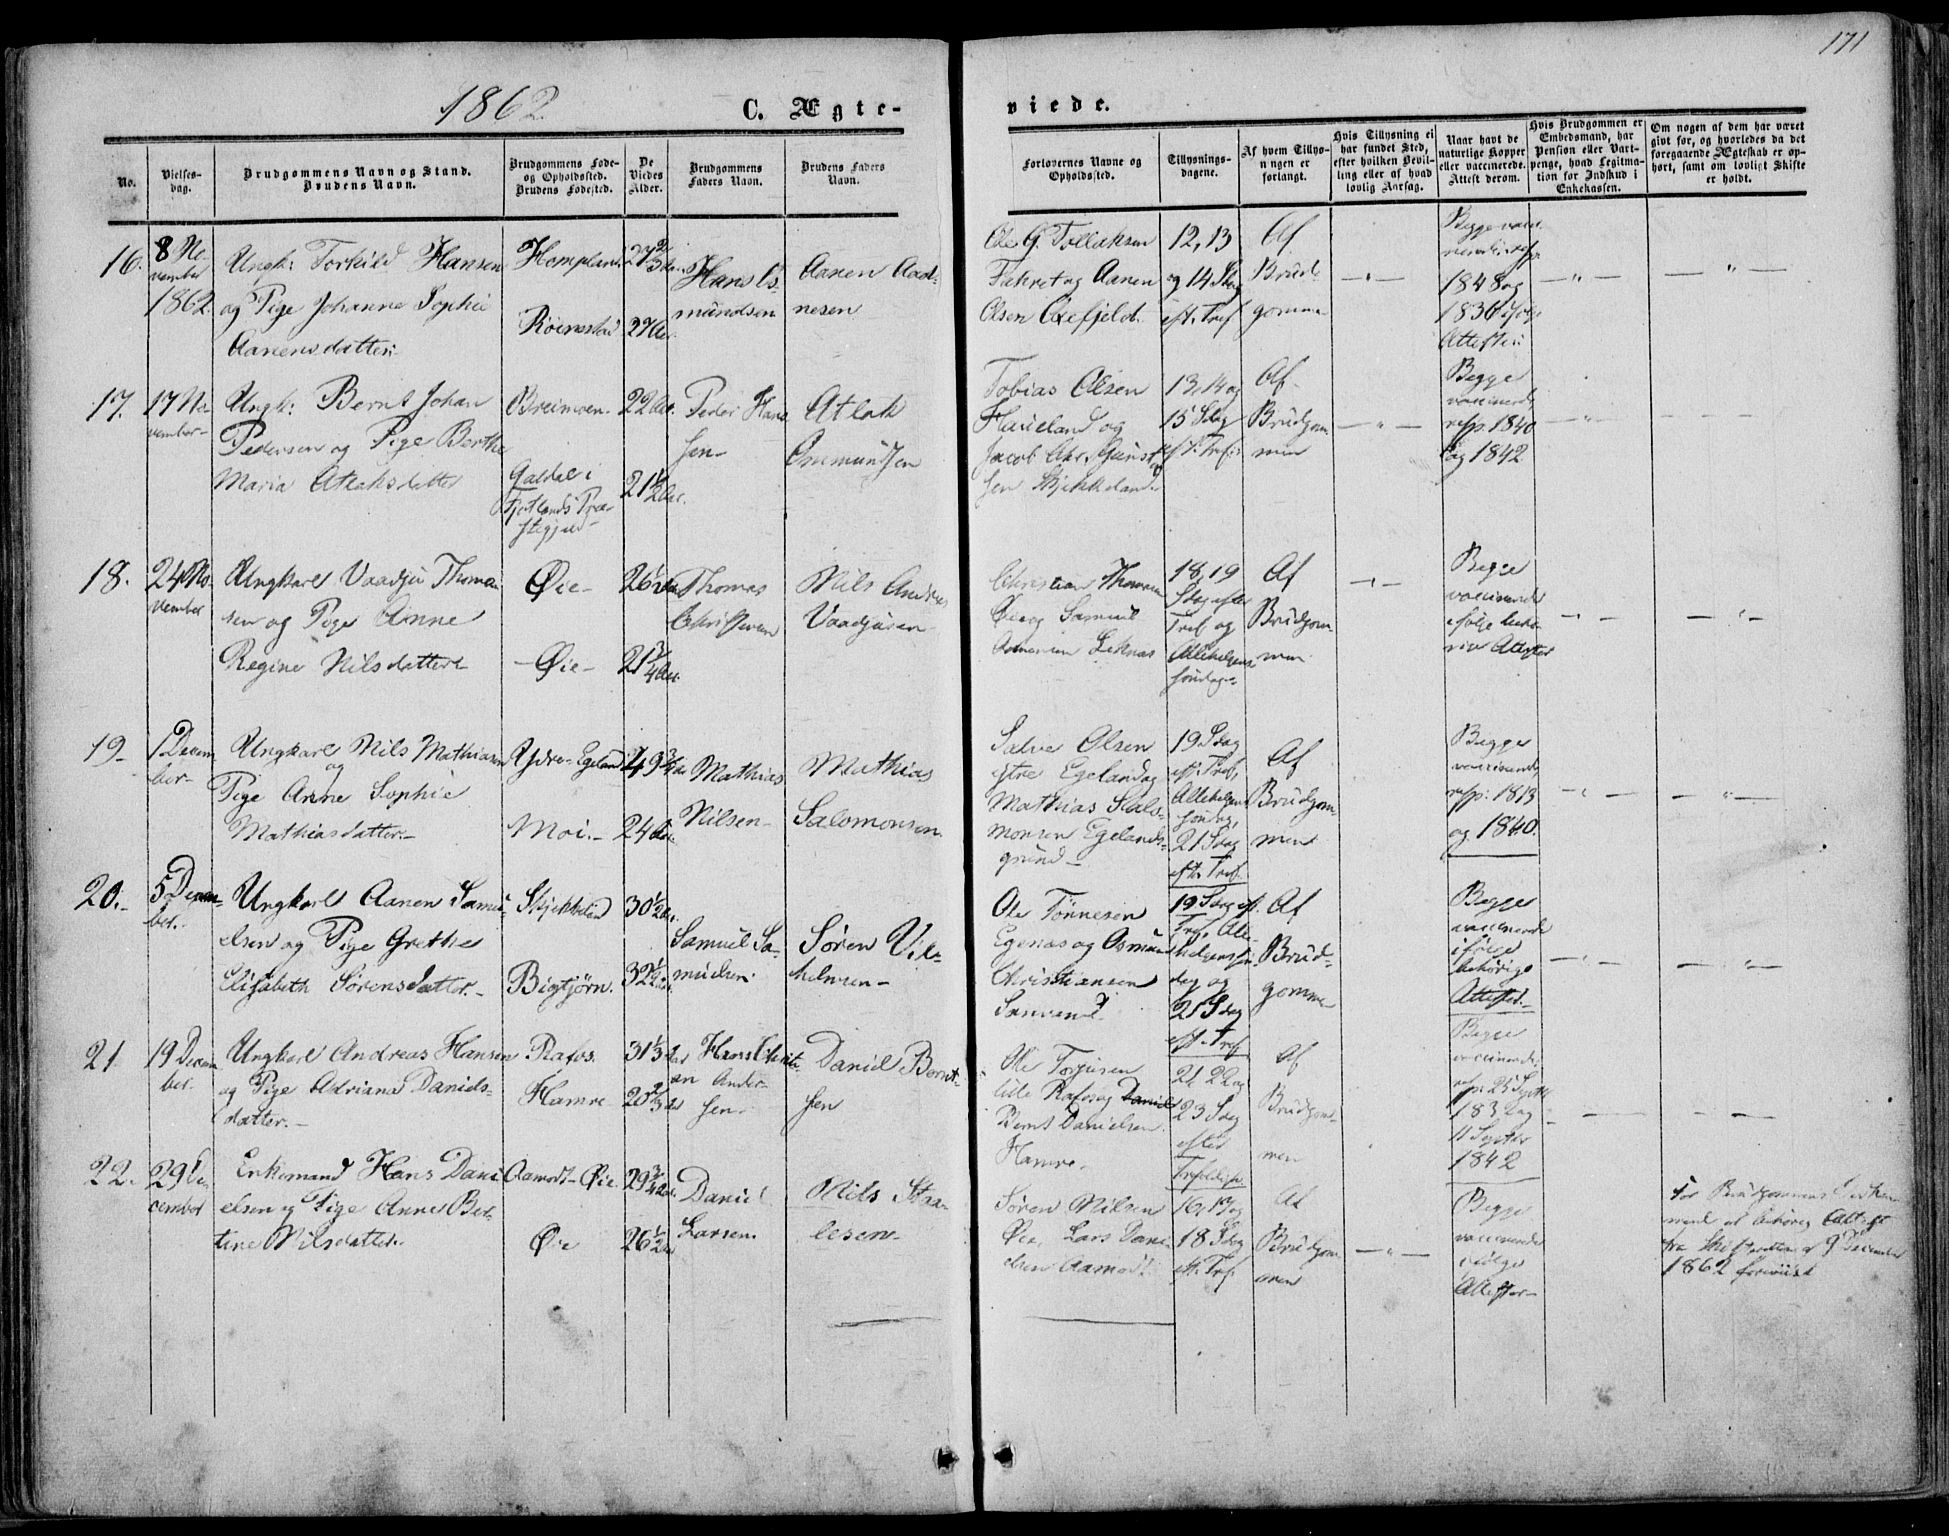 171
1862
C. Ægte-
viede.
No.
Vielses-
dag.
Brudgommens Navn og Stand.
Brudens Navn.
Brudgommens Føde-
og Opholdssted.
Brudens Fødested.
De
Viedes
Alder.
Brudgommens
Faders Navn.
Brudens Faders
Navn.
Forlovernes Navne og
Opholdssted.
Tillysnings-
dagene.
Af hvem Tillys-
ningen er
forlangt.
Hvis Tillysning ei
har fundet Sted,
efter hvilken Bevil-
ling eller af hvad
lovlig Aarsag.
Naar havt de
naturlige Kopper
eller vaccinerede.
Attest derom.
Hvis Brudgommen er
Embedsmand, har
Pension eller Vart-
penge, hvad Legitima-
tion for Indskud i
Enkekassen.
Om nogen af dem har været
givt før, og hvorledes da det
foregaaende Ægteskab er op-
hørt, samt om lovligt Skifte
er holdt.
16.
8 No-
vember
1862.
Ungk: Torkild Hansen
og Pige Johanne Sophie
Aanensdatter.
Hompland
Røienestad
27 2/3
27 Aar.
Hans Os-
mundsen
Aanen Aad-
nesen
Ole G. Tollaksen
og Aanen
Olsen
12, 13
og 14 Sdag
eft. Tref
Af
Brud-
gomme
Begge vacci-
1848 og
1836
Attester.
17.
17 No-
vember
Ungk: Bernt Johan
Pedersen og Pige Berthe
Maria Atlaksdatter
Breimoen
Galdal i
Fjotlands Præ-
stegjeld
22 Aar.
21 1/2 Aar.
Peder Han-
sen
Atlak
Ommundsen
Tobias Olsen
Haueland og
Jacob Chr.
sen Skjekkeland
13, 14 og
15 Sdag
eft. Tref.
Af
Brudgom-
men
Begge
vaccinerede
resp. 1840
og 1842
18.
24 No-
vember
Ungkarl Vaadju Thoma-
sen og Pige Anne
Regine Nilsdatter
Øie
Øie
26 1/2 Aar
21 3/4 Aar.
Thomas
Christensen
Nils Andreas
Vaadjusen
Christian Thomasen
Øie og Samuel
18, 19
Sdag efter
Tref og
Allehelgens
søndag
Af
Brudgom-
men
Begge
vaccinerede
ifølge behø-
rige Attester
19
1 Decem-
ber
Ungkarl Nils Mathiasen
og
Pige Anne Sophie
Mathiasdatter.
Ydre-Egeland
Moi.
49 3/4
24 Aar.
Mathias
Nilsen
Mathias
Salomonsen
Salve Olsen
ytre Egeland og
Mathias Salo-
monsen Egelands-
grund
19 Sdag
eft. Tref,
Allehelgens
søndag,
21 Sdag
eft. Tref.
Af
Brudgom-
men
Begge
vaccinerede
resp: 1813
og 1840.
20.
5 Decem-
ber.
Ungkarl Aanen Samu-
elsen og Pige Grethe
Elisabeth Sørensdatter.
Skjekkeland
Bigtjørn.
30 1/2 Aar.
32 1/2
Samuel Sa-
muelsen.
Søren Vil-
helmsen
Ole Tønnesen
Egenæs og Asmund
Christiansen
19 Sdag eft.
Tref. Alle-
helgenssøn-
dag og
21 Sdag
eft. Tref
Af
Brud-
gomme
Begge
vaccinerede
ifølge
behørige
Attester.
21
19 Decem-
ber.
Ungkarl Andreas Hansen
og Pige Adriane Daniels-
datter.
Rafos
Hamre
31 1/3 Aar
20 2/3
Hans Christi-
an Ander-
sen
Daniel Bernt-
sen
Ole Torjusen
lille Rafos og Daniel
Bernt Danielsen
Hamre.
21, 22 og
23 Sdag
efter
Trefoldigh.
Af
Brudgom-
men
Begge
vaccinerede
resp: 25 Septbr
1832 og
11 Septbr
1842
22.
29 De-
cember
Enkemand Hans Dani-
elsen og Pige Anne Ber-
tine Nilsdatter.
Aamodt-Øie
Øie
29 3/4 Aar.
26 1/2 Aar
Daniel
Larsen.
Nils Staa-
lesen
Søren Nilsen
Øie, Lars Dani-
elsen Aamodt
16, 17 og
18 Sdag
eft. Tref.
Af
Brudgom-
men
Begge
vaccinerede
ifølge
Attester
For Brudgommens
behørig Attest
fra Skifteretten af 9 December
1862 foreviist